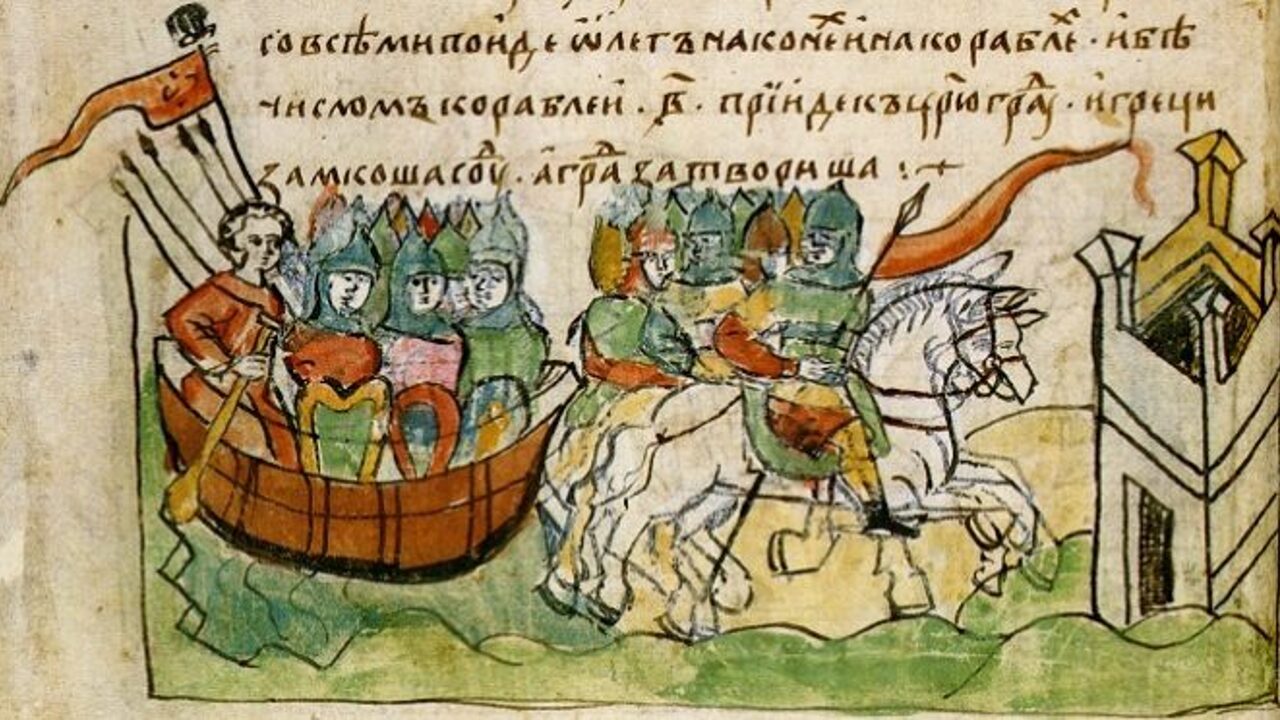 совсѣми поиде ѡлегъ на конеⷯ и на кораблеⷯ · и бѣ
числомъ кораблеи · в҃ · прїиде къ цр҃ю граⷣ · и греци
замкоша соуⷣ · а граⷣ затвориша :+